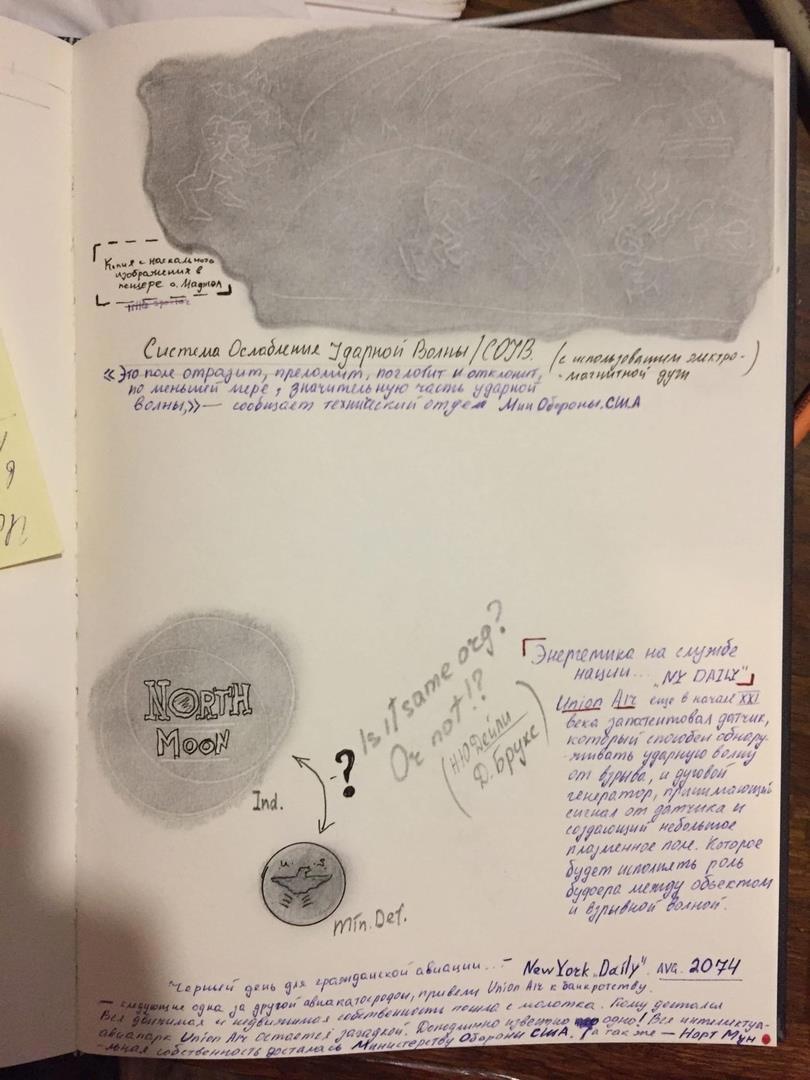 Копия с наскального
изображения в
пещере о. Маджол
Система Ослабления Ударной Волны/СОУВ. (с использованием электро-
-магнитной дуги)
«Это поле отразит, преломит, поглотит и отклонит,
по меньшей мере, значительную часть ударной
волны,» — сообщает технический отдел Мин Обороны. США
NORTH
MOON
Ind.
?
Is it same org?
Or not!?
(Н.Ю Дейли
Д. Брукс)
U. S.
Min. Def.
Энергетика на службе
нации... „NY DAILY"
Union Air еще в начале XXI
века запатентовал датчик,
который способен обнару-
-живать ударную волну
от взрыва, и дуговой
генератор, принимающий
сигнал от датчика и
создающий небольшое
плазменное поле. Которое
будет исполнять роль
буфера между объектом
и взрывной волной.
"Черный день для гражданской авиации...— New York „Daily". AVG. 2074
— следующие одна за другой авиакатастрофы, привели Union Air к банкротству.
Вся движимая и недвижимая собственность пошла с молотка. Кому достался
авиапарк Union Air остается загадкой. Доподлинно известно одно! Вся интелектуа-
-льная собственность досталась Министерству Обороны США. А так же — Норт Мун